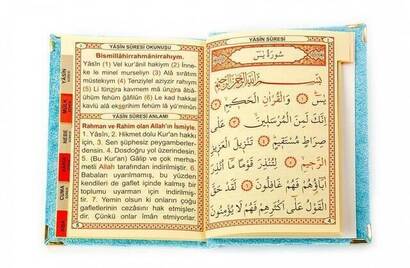 YÂSİN
MÜLK
NEBE
CUMA
YÂSİN SÛRESİ OKUNUŞU
Bismillâhirrahmânirrahıym.
Yâsîn (1) Vel kur'ânil hakiym (2) İnne-
ke le minel murseliyn (3) Alâ sırâtım
müstekıym (4) Tenziylel aziyzir rahıym
(5) Li tünzira kavmem mâ ünzira âbâ-
ühüm fehüm ğâfilûn (6) Le kad hakkal
kavlü alâ ekserihim fehüm lâ yü'minûn
YÂSİN SÛRESİ ANLAMI
Rahman ve Rahim olan Allah'ın İsmiyle.
1. Yâsîn, 2. Hikmet dolu Kur'an hakkı
için, 3. Sen şüphesiz peygamberler-
densin. 4. Dosdoğru yol üzerindesin.
5. (Bu Kur'an) Gâlip ve çok merha-
metli Allah tarafından indirilmiştir. 6.
Babaları uyarılmamış, bu yüzden
kendileri de gaflet içinde kalmış bir
toplumu uyarman için indirilmiş-
tir. 7. Yemin olsun ki onların çoğu
gafletlerinin cezasını hak etmişler-
dir. Çünkü onlar îmân etmiyorlar.
YÂSİN SÛRESİ
سُورَةُ يٰسٓ
بِسْمِ اللّٰهِ الرَّحْمٰنِ الرَّحِيمِ
يٰسٓ ﴿١﴾ وَالْقُرْاٰنِ الْحَكِيمِ ﴿٢﴾
اِنَّكَ لَمِنَ الْمُرْسَلِينَ ﴿٣﴾ عَلٰى
صِرَاطٍ مُسْتَقِيمٍ ﴿٤﴾ تَنْزِيلَ الْعَزِيزِ
الرَّحِيمِ ﴿٥﴾ لِتُنْذِرَ قَوْمًا مَٓا اُنْذِرَ
اٰبَٓاؤُهُمْ فَهُمْ غَافِلُونَ ﴿٦﴾ لَقَدْ حَقَّ
الْقَوْلُ عَلٰٓى اَكْثَرِهِمْ فَهُمْ لَا يُؤْمِنُونَ